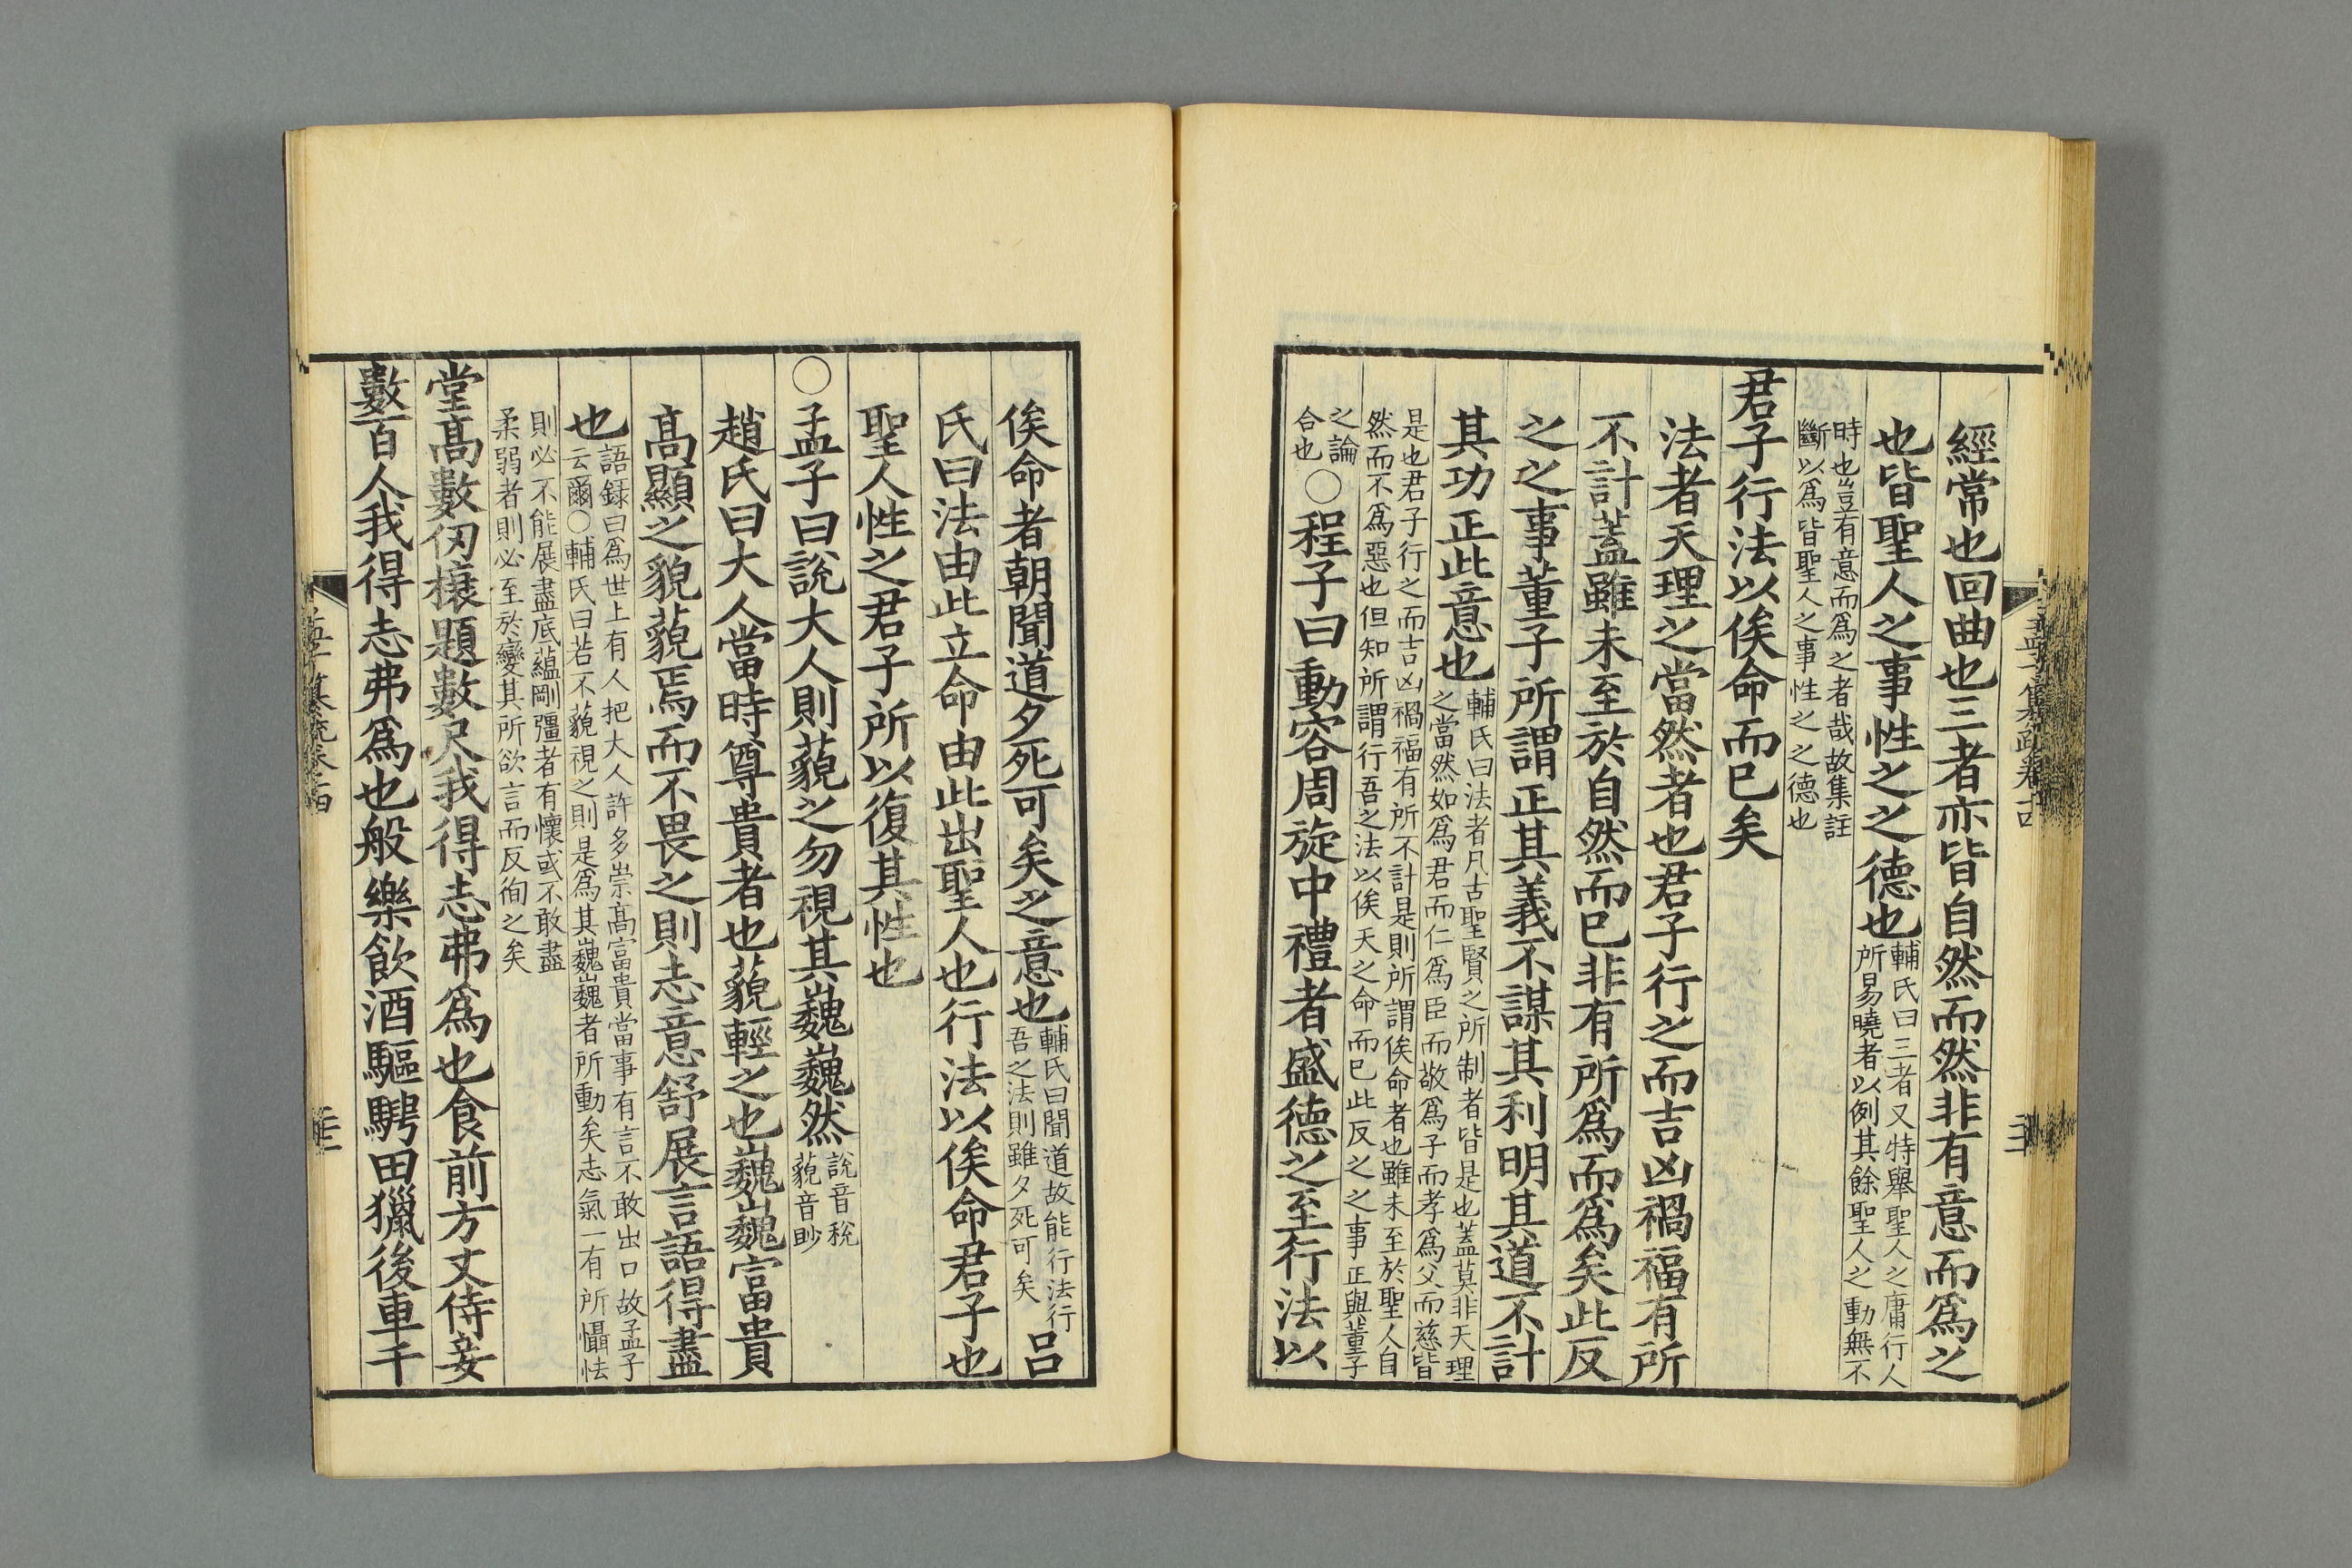 經常也回曲也三者亦皆自然而然非有意而爲之
也皆聖人之事性之之德也
輔氏曰三者又特舉聖人之庸行人
所易曉者以例其餘聖人之動無不
時也豈有意而爲之者哉故集註
斷以爲皆聖人之事性之之德也
君子行法以俟命而已矣
法者天理之當然者也君子行之而吉凶禍福有所
不計蓋雖未至於自然而已非有所爲而爲矣此反
之之事董子所謂正其義不謀其利明其道不計
其功正此意也
輔氏曰法者凡古聖賢之所制者皆是也蓋莫非天理
之當然如爲君而仁爲臣而敬爲子而孝爲父而慈皆
是也君子行之而吉凶禍福有所不計是則所謂俟命者也雖未至於聖人自
然而不爲惡也但知所謂行吾之法以俟天之命而已此反之之事正與董子
之論
合也
○程子曰動容周旋中禮者盛德之至行法以
孟子纂疏卷十四
俟命者朝聞道夕死可矣之意也
輔氏曰聞道故能行法行
吾之法則雖夕死可矣
呂
氏曰法由此立命由此出聖人也行法以俟命君子也
聖人性之君子所以復其性也
○孟子曰說大人則藐之勿視其巍巍然
說音稅
藐音眇
趙氏曰大人當時尊貴者也藐輕之也巍巍富貴
高顯之貌藐焉而不畏之則志意舒展言語得盡
也
語録曰爲世上有人把大人許多崇高富貴當事有言不敢出口故孟子
云爾○輔氏曰若不藐視之則是爲其巍巍者所動矣志氣一有所懾怯
則必不能展盡底蘊剛彊者有懷或不敢盡
柔弱者則必至於變其所欲言而反徇之矣
堂高數仞榱題數尺我得志弗爲也食前方丈侍妾
數百人我得志弗爲也般樂飲酒驅騁田獵後車千